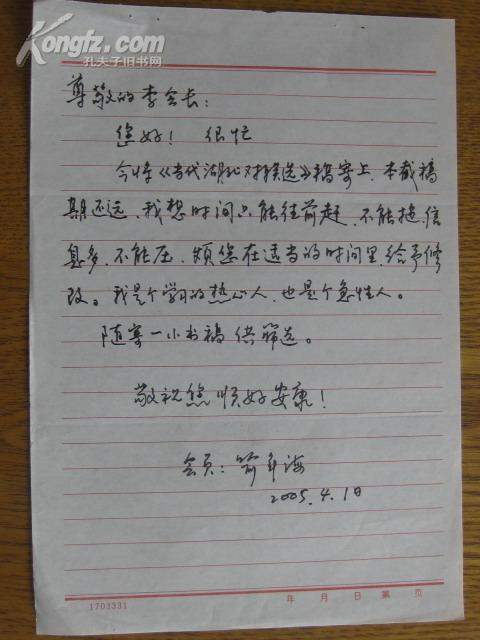 Kongfz.com
孔夫子旧书网
尊敬的李会长：
您好！ 很忙
今将《当代湖北对联选》稿寄上，本截稿
期还远，我想时间只能往前赶，不能拖，信
息多，不能压，烦您在适当的时间里，给予修
改。我是个学习的热心人，也是个急性人。
随寄一小书稿供筛选。
敬祝您顺好安康！
会员：喻年海
2005.4.1日
1703331
年 月 日 第 页